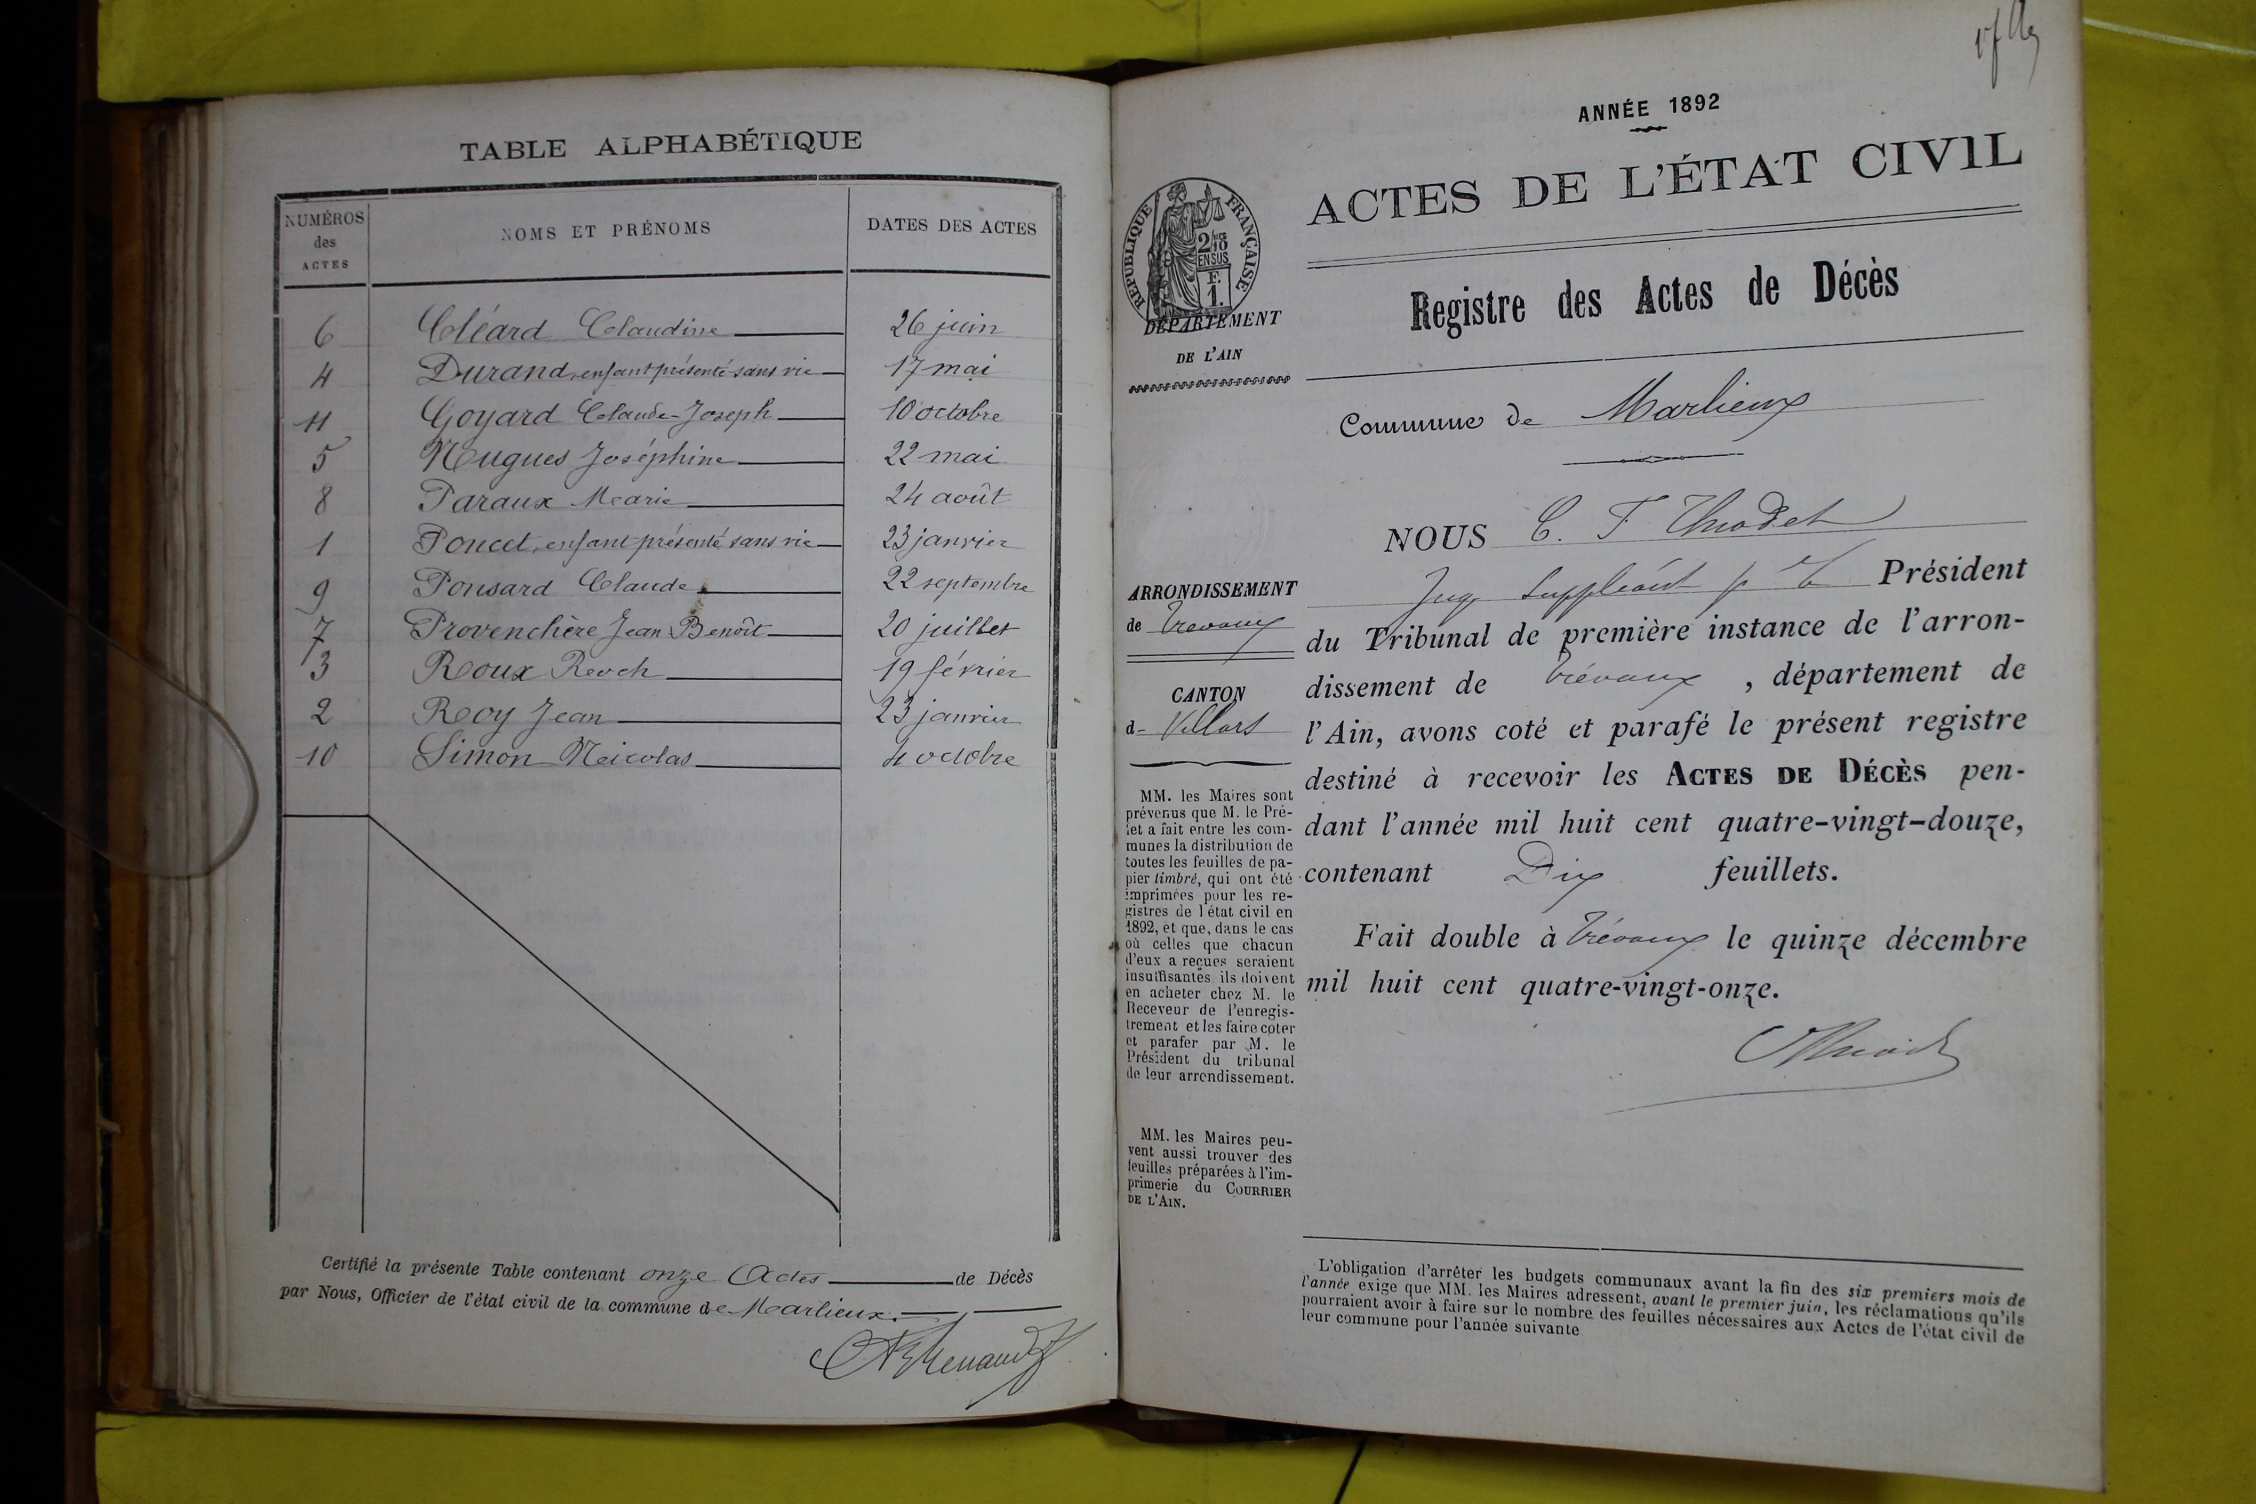 TABLE ALPHABÉTIQUE
NUMÉROS des ACTES NOMS ET PRÉNOMS DATES DES ACTES
6 Cléard Claudine 26 juin
4 Durand, enfant présenté sans vie 17 mai
11 Goyard Claude-Joseph 10 octobre
5 Nugues Joséphine 22 mai
8 Paraux Marie 24 août
1 Poncet, enfant présenté sans vie 23 janvier
9 Ponsard Claude 22 septembre
7 Provenchère Jean Benoît 20 juillet
3 Roux Roch 19 février
2 Roy Jean 23 janvier
10 Simon Nicolas 4 octobre
Certifié la présente Table contenant onze Actes de Décès
par Nous, Officier de l'état civil de la commune de Marlieux.
ANNÉE 1892
ACTES DE L'ÉTAT CIVIL
RÉPUBLIQUE FRANÇAISE
2/10
EN SUS
F.
1.
DÉPARTEMENT
DE L'AIN
Registre des Actes de Décès
Commune de Marlieux
ARRONDISSEMENT
de Trévoux
CANTON
d- Villars
MM. les Maires sont
prévenus que M. le Pré-
fet a fait entre les com-
munes la distribution de
toutes les feuilles de pa-
pier timbré, qui ont été
imprimées pour les re-
gistres de l'état civil en
1892, et que, dans le cas
où celles que chacun
d'eux a reçues seraient
insuffisantes ils doivent
en acheter chez M. le
Receveur de l'enregis-
trement et les faire coter
et parafer par M. le
Président du tribunal
de leur arrondissement.
MM. les Maires peu-
vent aussi trouver des
feuilles préparées à l'im-
primerie du COURRIER
DE L'AIN.
NOUS C. F. Thiodet
Juge suppléant Président
du Tribunal de première instance de l'arron-
dissement de Trévoux, département de
l'Ain, avons coté et parafé le présent registre
destiné à recevoir les ACTES DE DÉCÈS pen-
dant l'année mil huit cent quatre-vingt-douze,
contenant Dix feuillets.
Fait double à Trévoux le quinze décembre
mil huit cent quatre-vingt-onze.
L'obligation d'arrêter les budgets communaux avant la fin des six premiers mois de
l'année exige que MM. les Maires adressent, avant le premier juin, les réclamations qu'ils
pourraient avoir à faire sur le nombre des feuilles nécessaires aux Actes de l'état civil de
leur commune pour l'année suivante